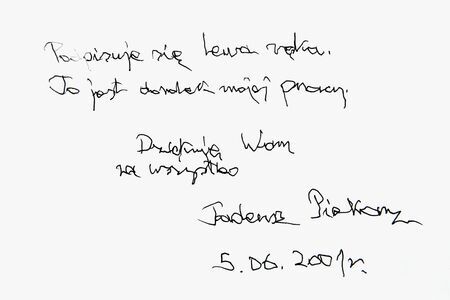 Podpisuję się lewa ręka.
To jest dorobek mojej pracy.
Dziękuję Wam
za wszystko
Tadeusz Piekarz
5.06.2001r.